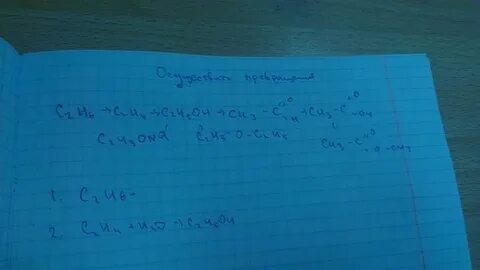 Осуществить превращения
C₂H₆ → C₂H₄ → C₂H₅OH → CH₃ - C =O -H → CH₃ - C =O -OH
C₂H₅ONa C₂H₅ - O - C₂H₅
CH₃ - C =O -O -CH₃
1. C₂H₆ -
2. C₂H₄ + H₂O → C₂H₅OH